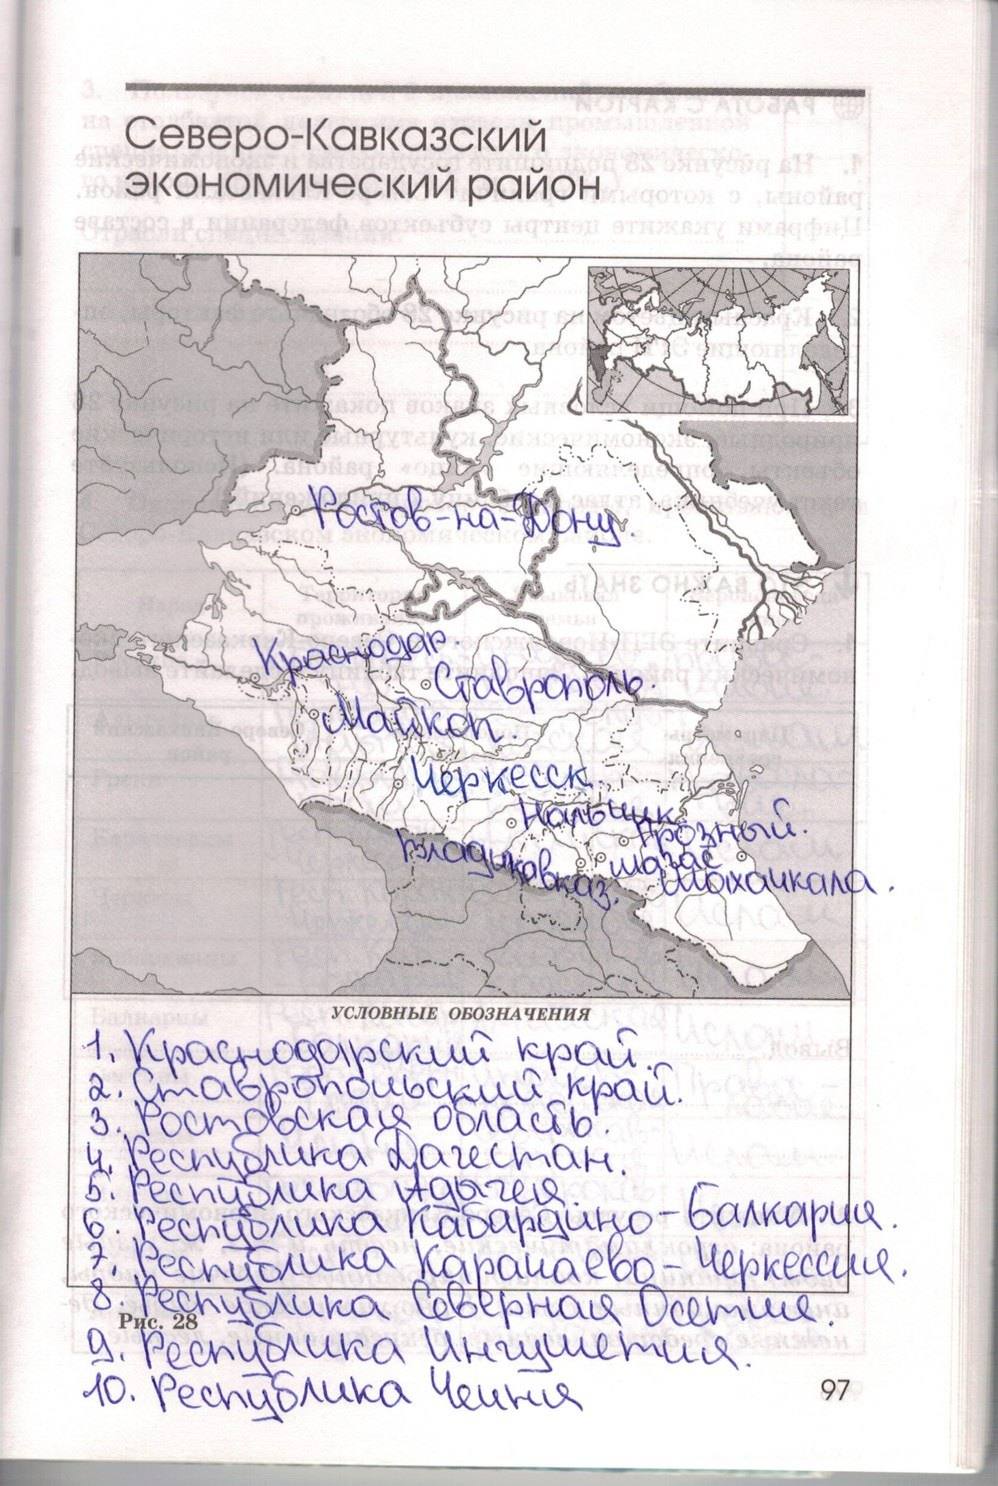 Северо-Кавказский
экономический район
Ростов-на-Дону
Краснодар
Ставрополь.
Майкоп
Черкесск.
Нальчик
Грозный.
Владикавказ.
Махачкала.
УСЛОВНЫЕ ОБОЗНАЧЕНИЯ
1. Краснодарский край.
2. Ставропольский край.
3. Ростовская область.
4. Республика Дагестан.
5. Республика Адыгея
6. Республика Кабардино-Балкария.
7. Республика Карачаево-Черкессия.
8. Республика Северная Осетия.
Рис. 28
9. Республика Ингушетия.
10. Республика Чечня
97